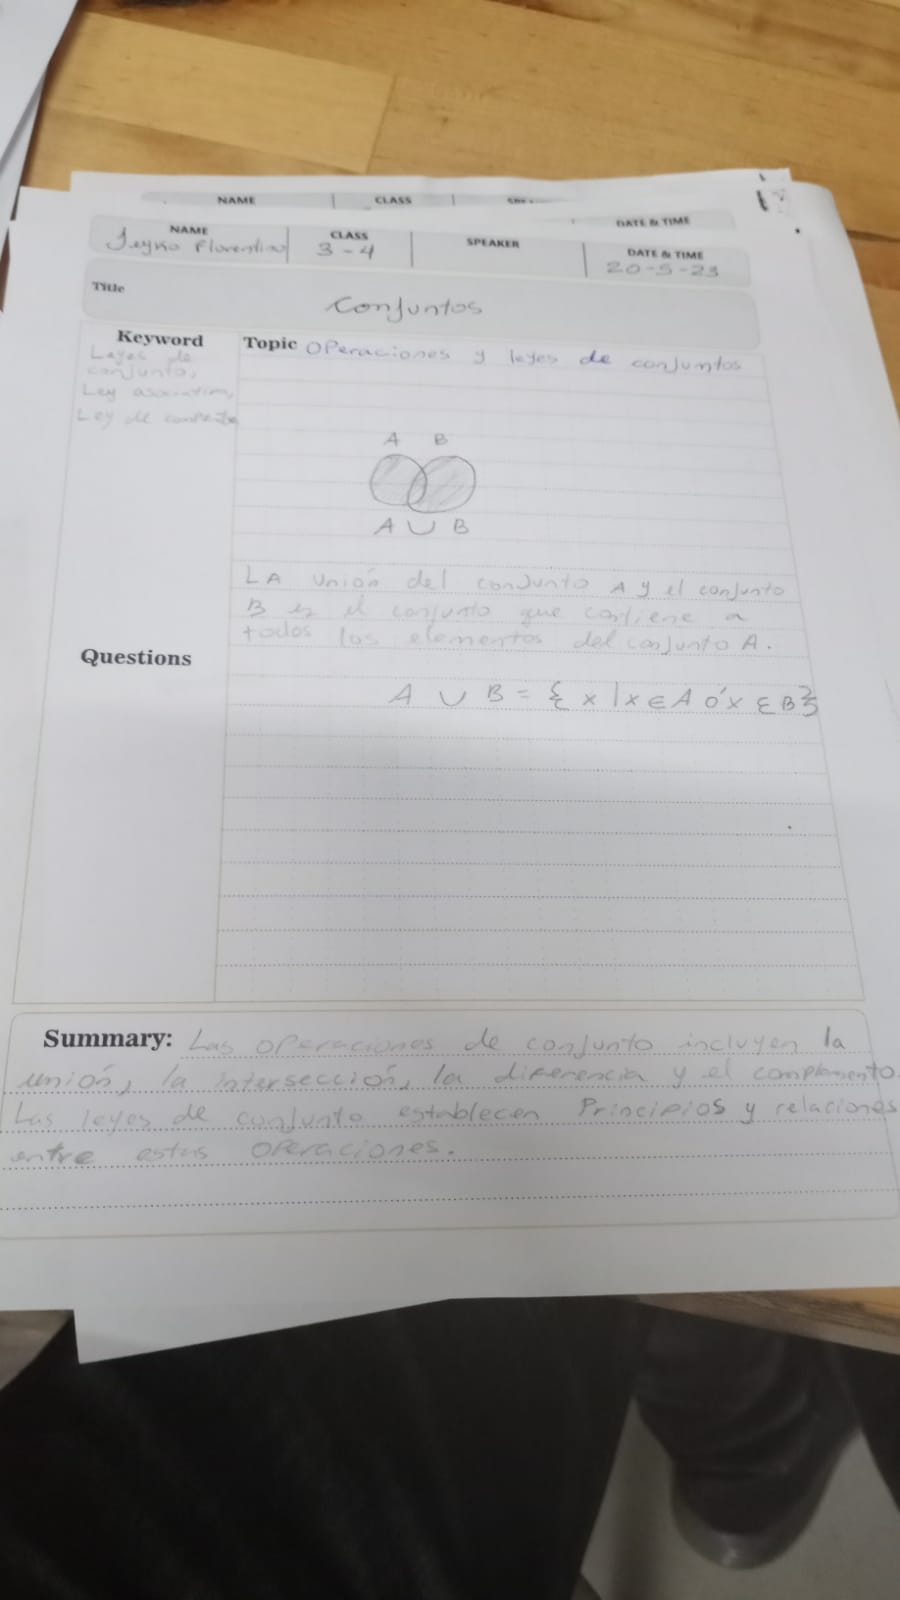 NAME CLASS
DATE & TIME
NAME CLASS SPEAKER DATE & TIME
Jeyko Florentino 3-4 20-5-23
Title
Conjuntos
Keyword
Leyes de
conjunto,
Ley asociativa,
Ley de
Topic Operaciones y leyes de conjuntos
A B
A ∪ B
LA unión del conjunto A y el conjunto
B es el conjunto que contiene a
todos los elementos del conjunto A.
Questions
A ∪ B = { x | x ∈ A ó x ∈ B }
Summary: Las operaciones de conjunto incluyen la
unión, la intersección, la diferencia y el complemento.
Las leyes de conjunto establecen Principios y relaciones
entre estas operaciones.